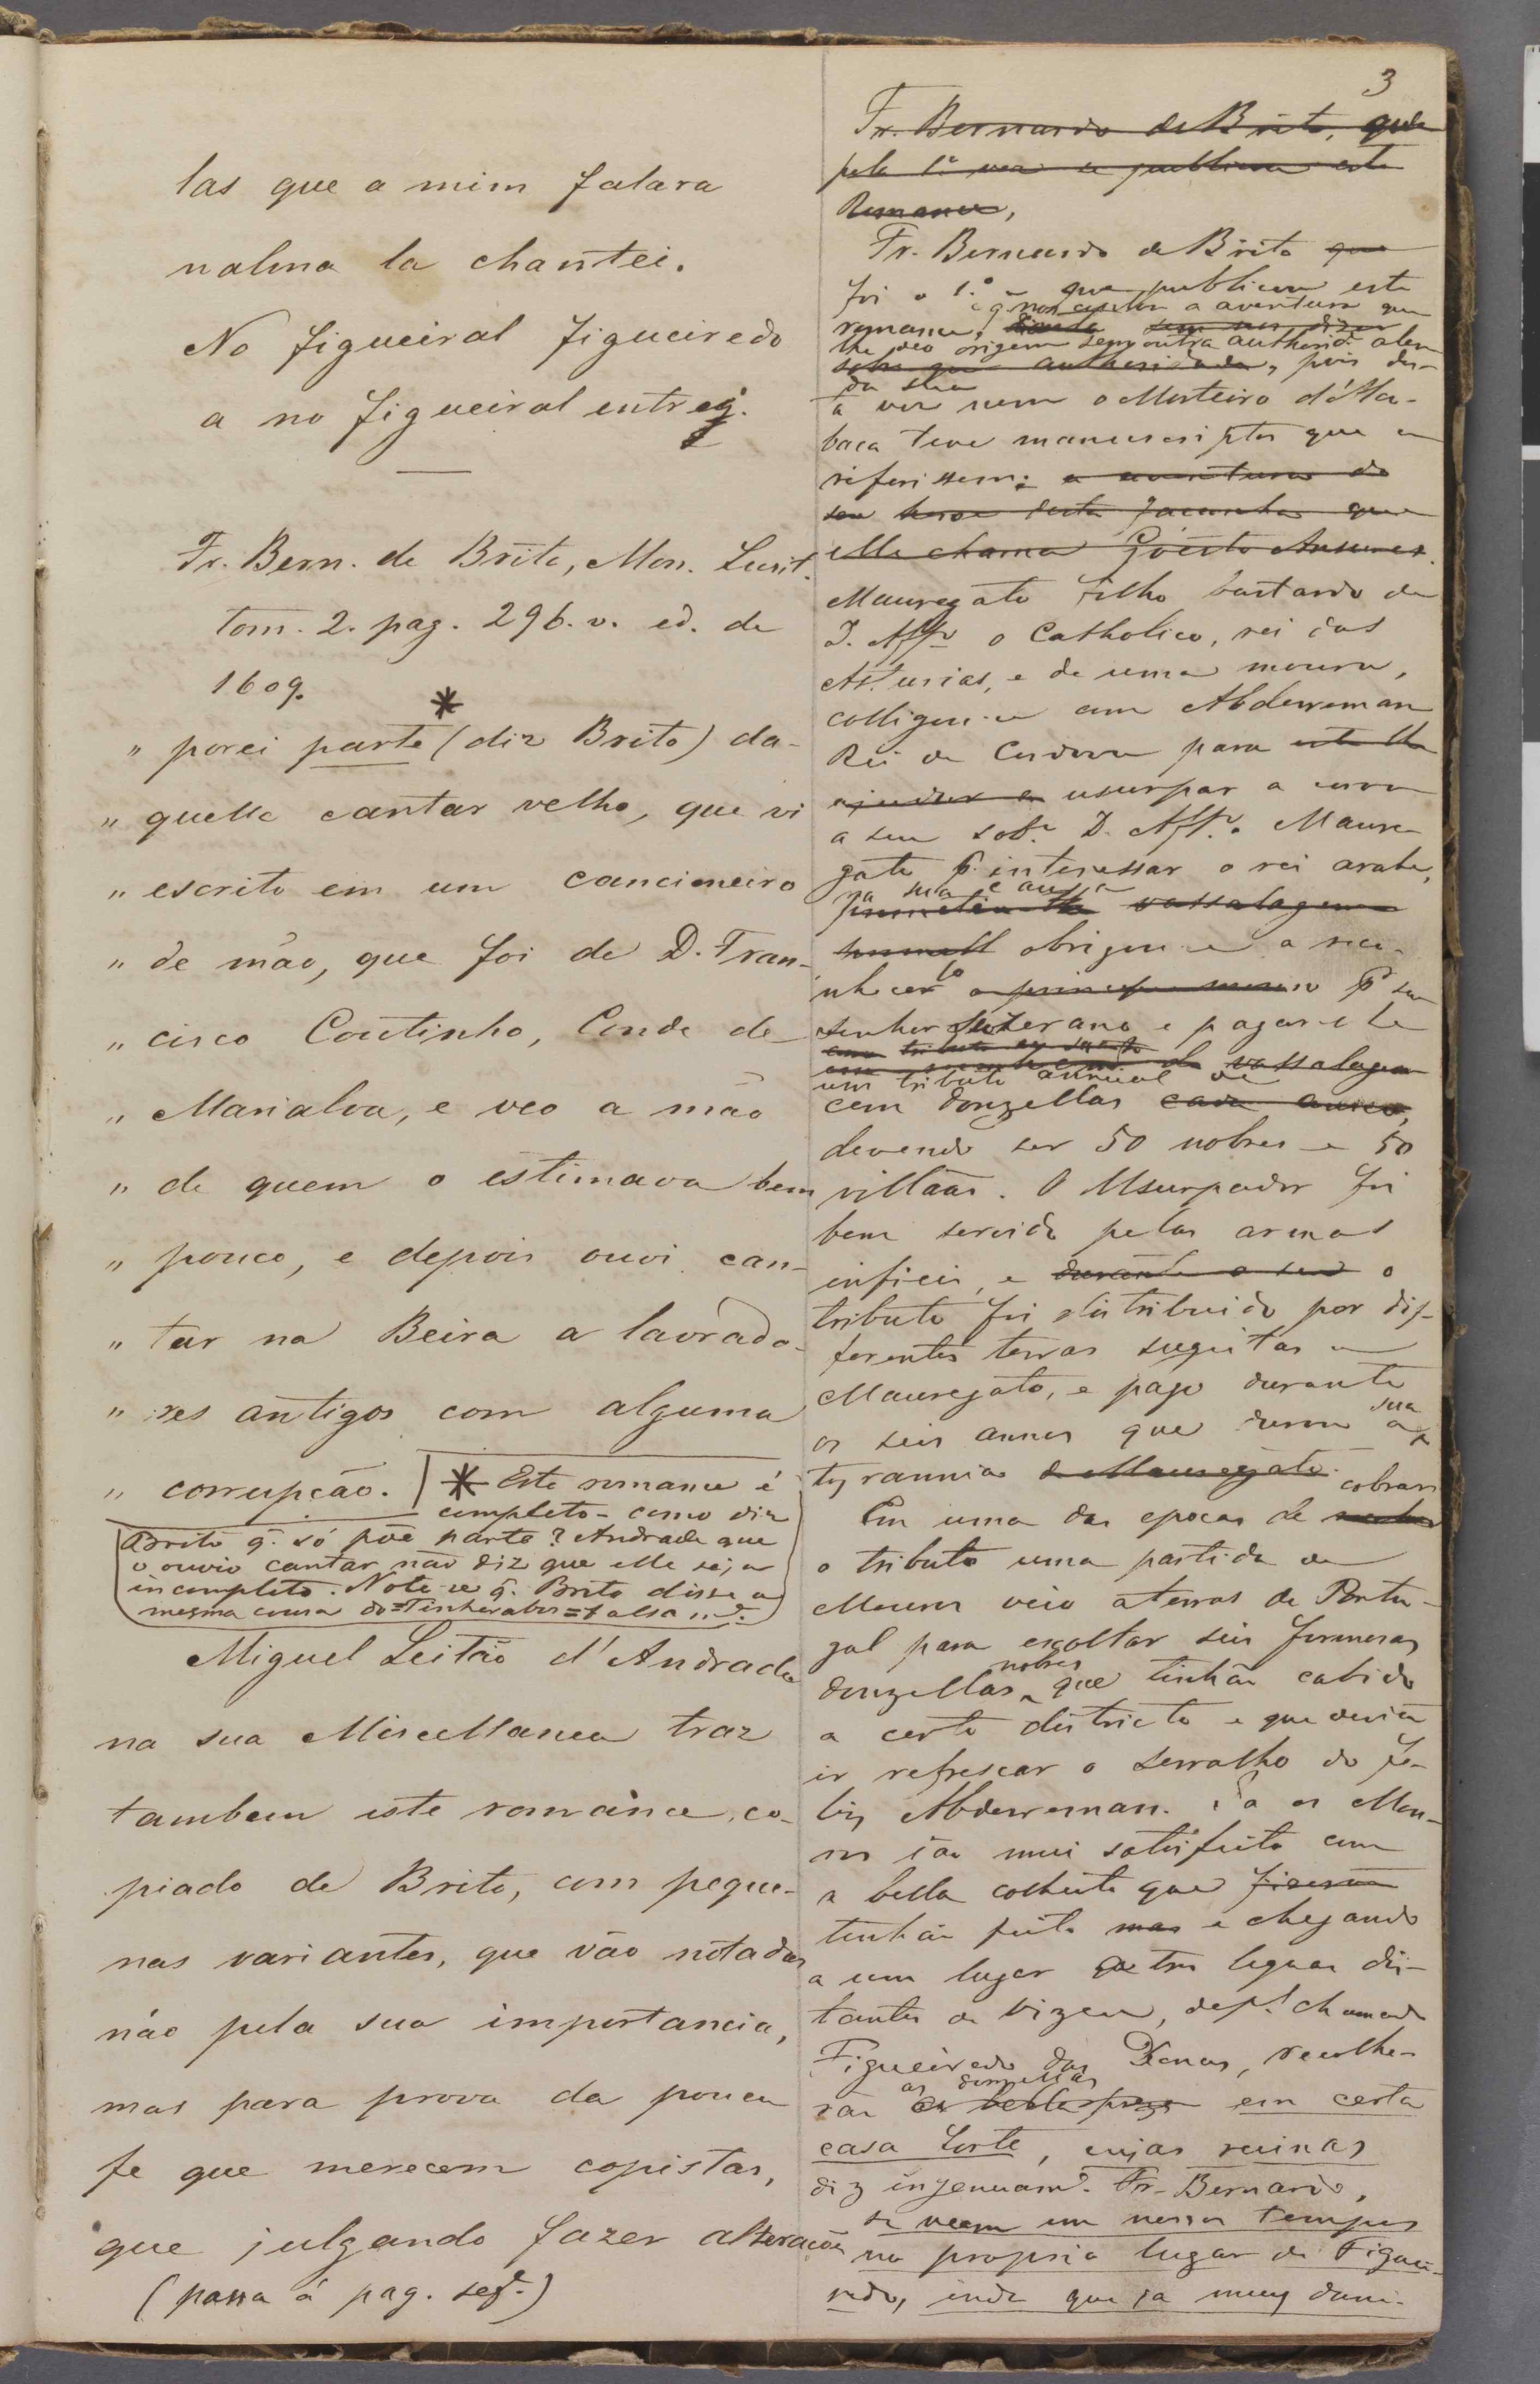 las que a mim falara
nalma la chantei.
No figueiral figueiredo
a no figueiral entrey.
Fr. Bern. de Brito, Mon. Lusit.
tom. 2. pag. 296. v. ed. de
1609.
" porei parte * (diz Brito) da-
" quelle cantar velho, que vi
" escrito em um cancioneiro
" de mão, que foi de D. Fran-
" cisco Coutinho, Conde de
" Marialva, e veo a mão
" de quem o estimava bem
" pouco, e depois ouvi can-
" tar na Beira a lavrado-
" res antigos com alguma
" corrupção.
* Este romance é
completo - como diz
Brito q. só põe parte? Andrade que
o ouvio cantar não diz que elle seja
incompleto. Note-se q. Brito disse a
mesma cousa do = Tinherabos = falsa.
Miguel Leitão d'Andrade
na sua Miscellanea traz
tambem este romance, co-
piado de Brito, com peque-
nas variantes, que vão notadas
não pela sua importancia,
mas para prova da pouca
fe que merecem copistas,
que julgando fazer alteracões
(passa á pag. segᵉ.)
3
Fr. Bernardo de Brito, que
pela 1ª vez se publicou este
Romance,
Fr. Bernardo de Brito que
foi o 1.º que publicou este
e q nos contou a aventura que
romance, sem nos dizer
lhe deo origem sem outra authorid.ᵉ alem
da sua
sobre que authoridade, pois des-
ta vez nem o Mosteiro d'Alco-
baca teve manuscriptos que a
referissem; a aventura do
seu heroe desta facanha que
elle chama Goesto Ansures.
Mauregato filho bastardo de
D. Affº o Catholico, rei das
Asturias, e de uma moura,
colligou-se com Abderreman
Rei de Cordova para este lhe
ajudar a usurpar a coroa
a seu sob.º D. Aff.º Maure-
gato p.ª interessar o rei arabe,
na sua causa
prometeu-lhe vassalagem
obrigou-se a reco-
nhecel-o o principe mouro pʳ seu
senhor suzerano e pagar-lhe
vassalagem
um tributo annual de
cem donzellas cada anno,
devendo ser 50 nobres e 50
villãas. O Usurpador foi
bem servido pelas armas
infieis, e durante o seu o
tributo foi distribuido por dif-
ferentes terras sugeitas a
Mauregato, e pago durante
os seis annos que durou a sua
tyrannia de Mauregato.
Em uma das epocas de cobrar
o tributo uma partida de
Mouros veio a terras de Portu-
gal para escoltar seis formosas
donzellas nobres que tinhão cabido
a certo districto e que devião
ir refrescar o serralho do fe-
liz Abderreman. Ja os Mou-
ros ião mui satisfeitos com
a bella colheita que fizerão
tinhão feito mas e chegando
a um lugar de tres legoas dis-
tantes de Vizeu, depˢ chamado
Figueiredo das Donas, recolhe-
rão as donzellas em certa
casa forte, cujas ruinas
diz ingenuamᵉ. Fr. Bernardo,
se veem em nossos tempos
no proprio lugar de Figuei-
redo, inda que ja muy dani-